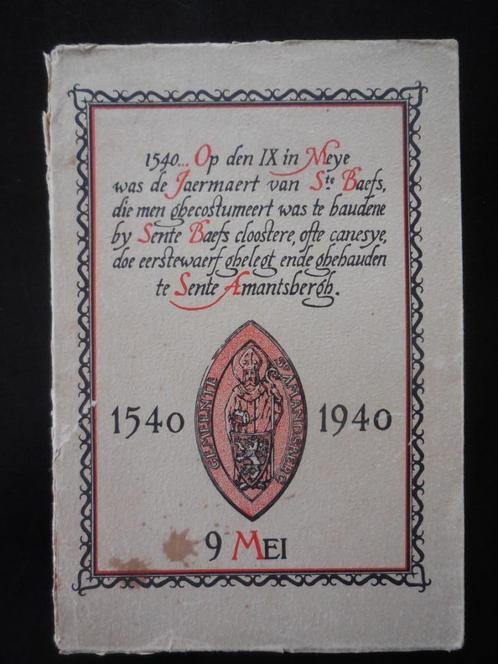 1540... Op den IX in Meye
was de Jaermaert van Ste Baefs,
die men ghecostumeert was te haudene
by Sente Baefs cloostere, ofte canesye,
doe eerstewaerf ghelegt ende ghehauden
te Sente Amantsbergh.
GEMEENTE ST AMANDSBERG
1540 1940
9 MEI